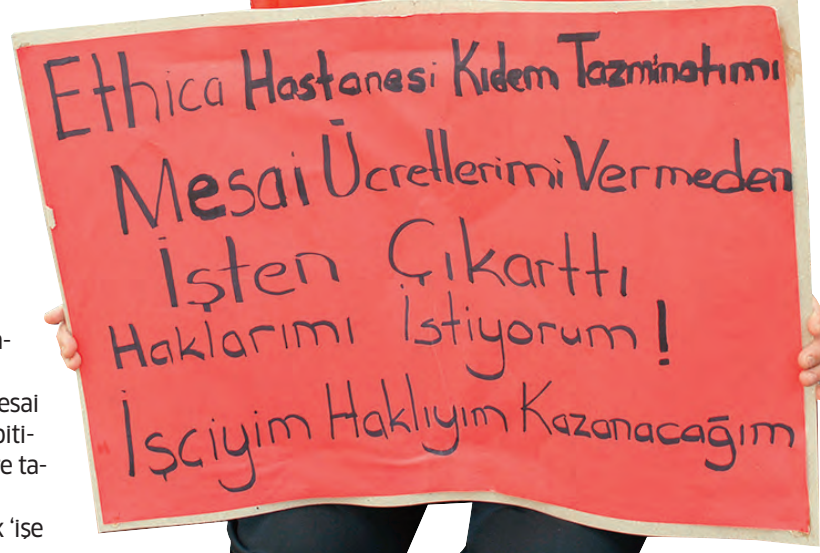 Ethica Hastanesi Kıdem Tazminatımı
Mesai Ücretlerimi Vermeden
İşten Çıkarttı
Haklarımı İstiyorum!
İşçiyim Haklıyım Kazanacağım
esai
biti-
e ta-
‘işe